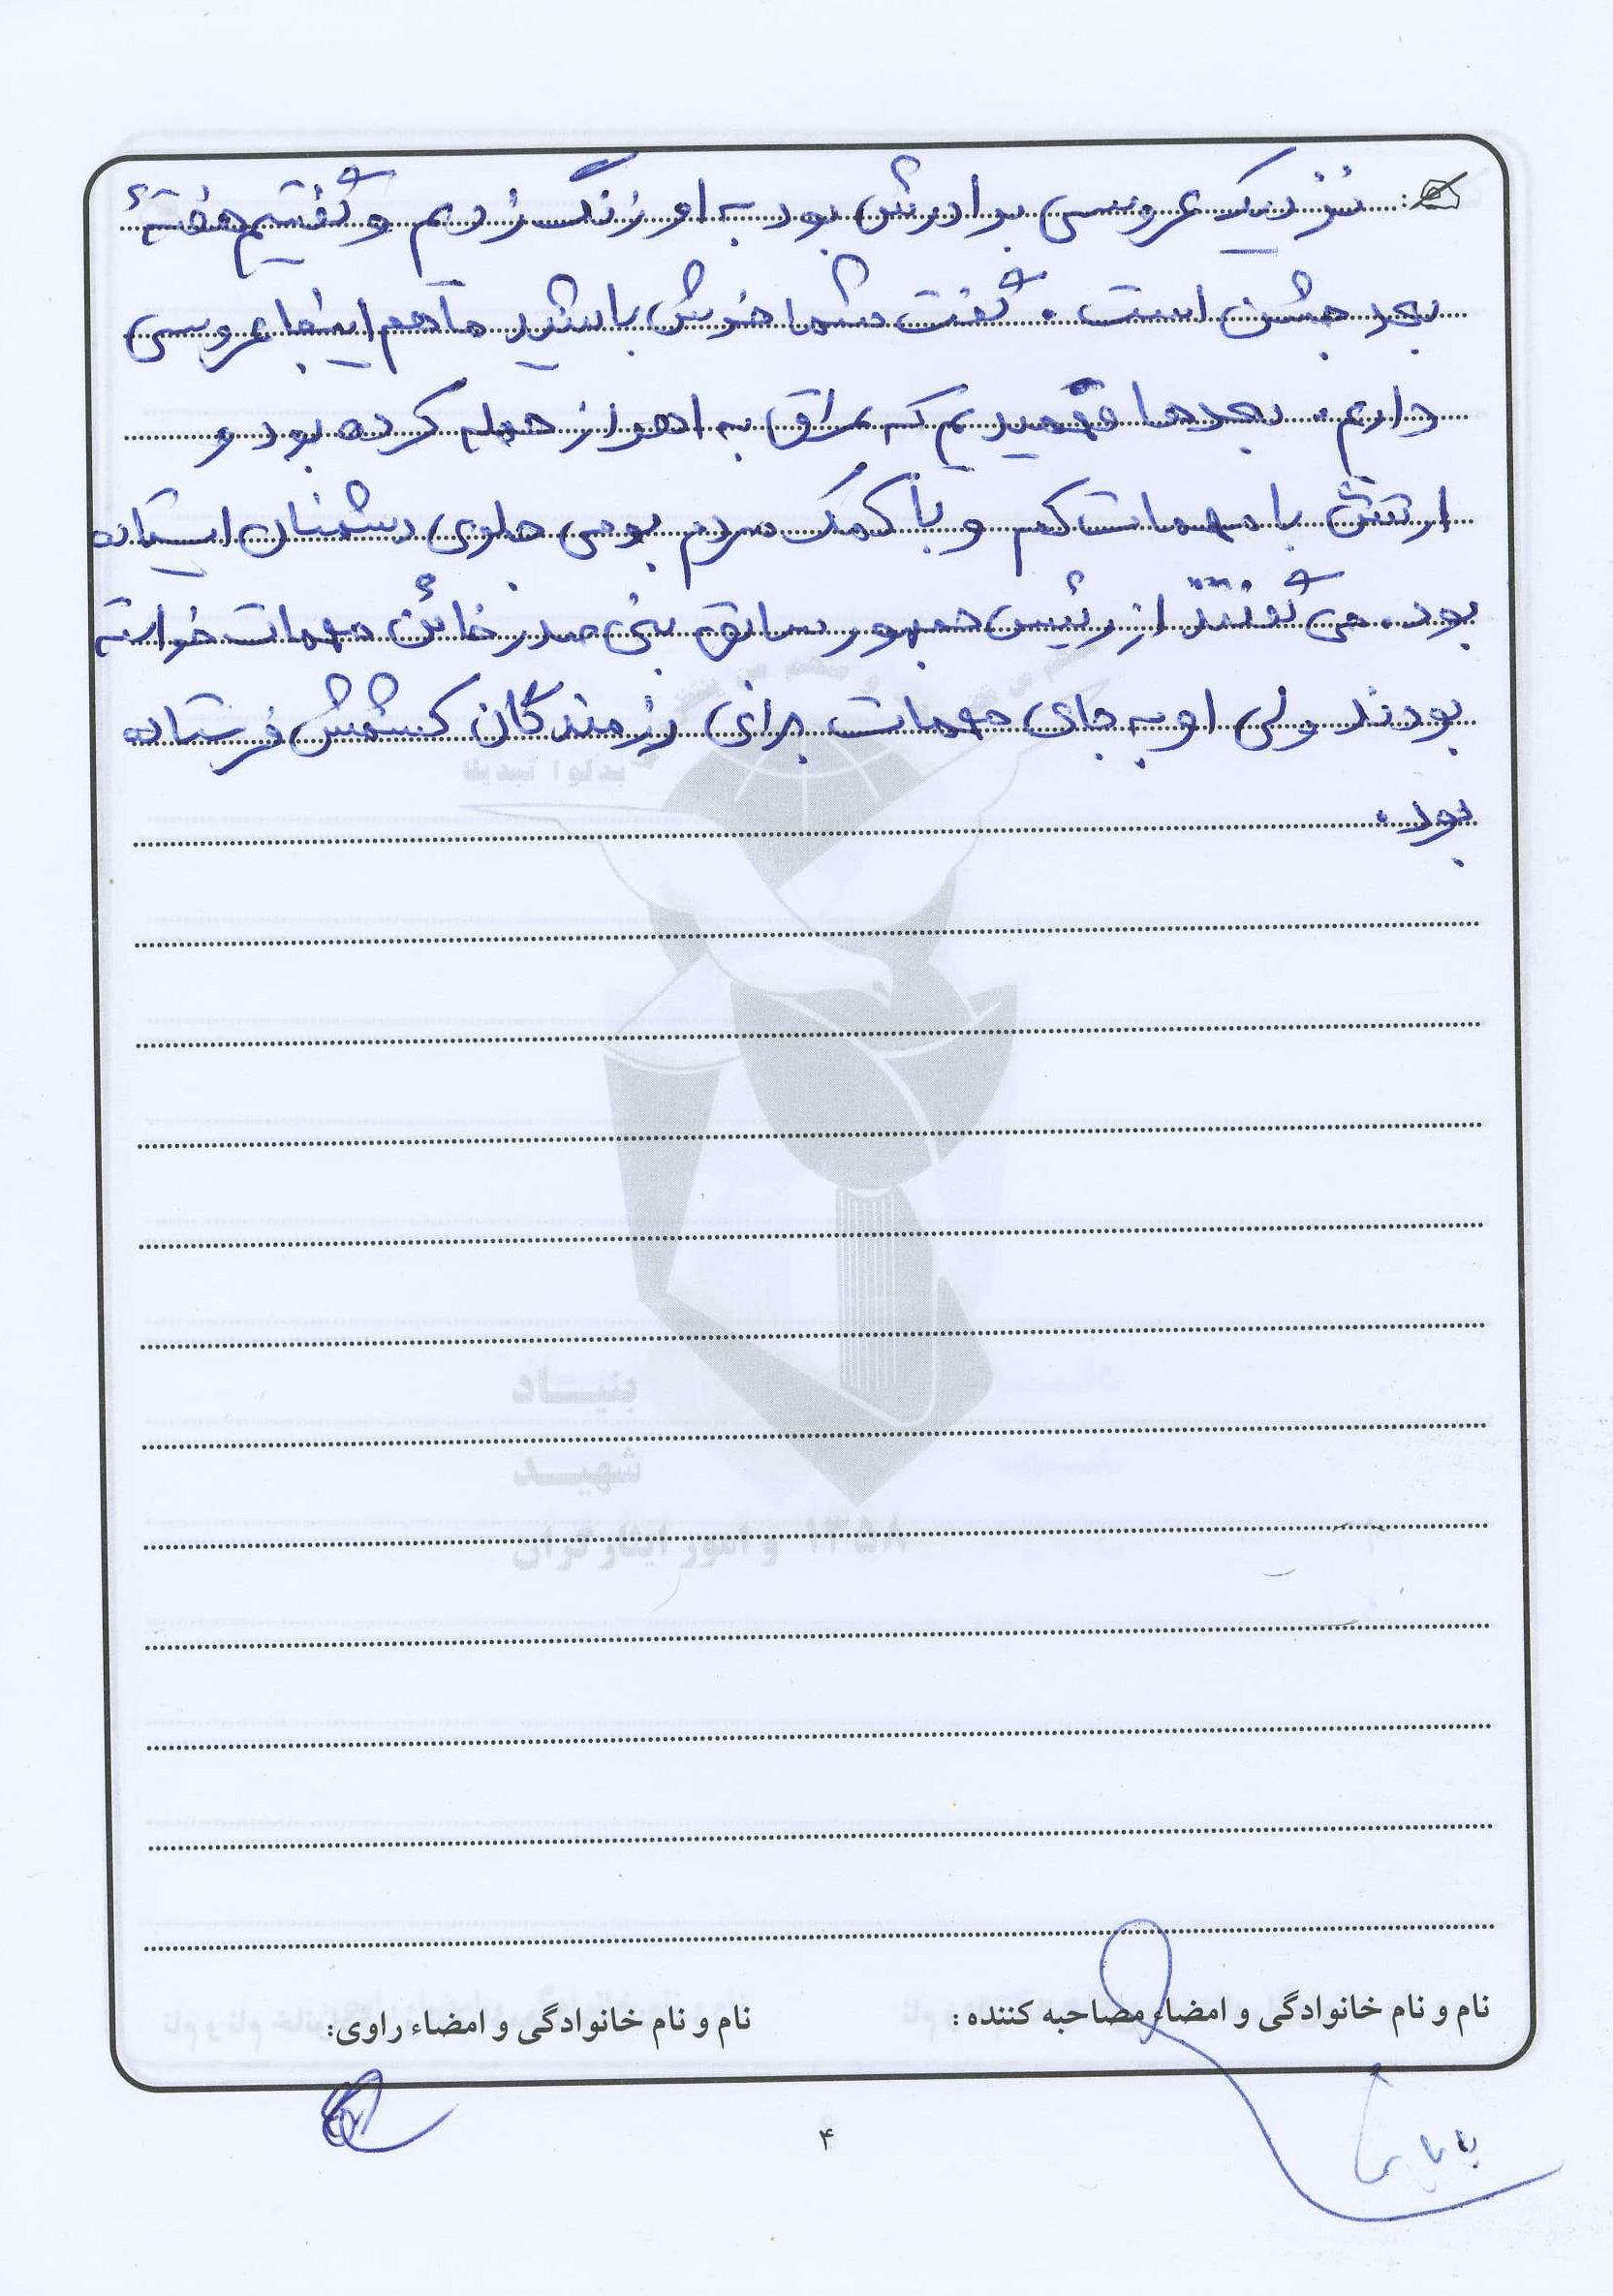 نزدیک عروسی برادرش بود به او زنگ زدیم و گفتیم هفتهٔ
بعد جشن است. گفت شما خوش باشید ما هم اینجا عروسی
داریم. بعدها فهمیدیم که عراق به اهواز حمله کرده بود و
ارتش با مهمات کم و با کمک مردم بومی جلوی دشمنان ایستاده
بود. می گفتند از رئیس جمهور سابق بنی صدر خائن مهمات خواسته
بودند ولی او به جای مهمات برای رزمندگان کشمش فرستاده
بود.
بنیاد
شهید
و امور ایثارگران ۱۳۵۸
نام و نام خانوادگی و امضاء مصاحبه کننده :
نام و نام خانوادگی و امضاء راوی:
۴